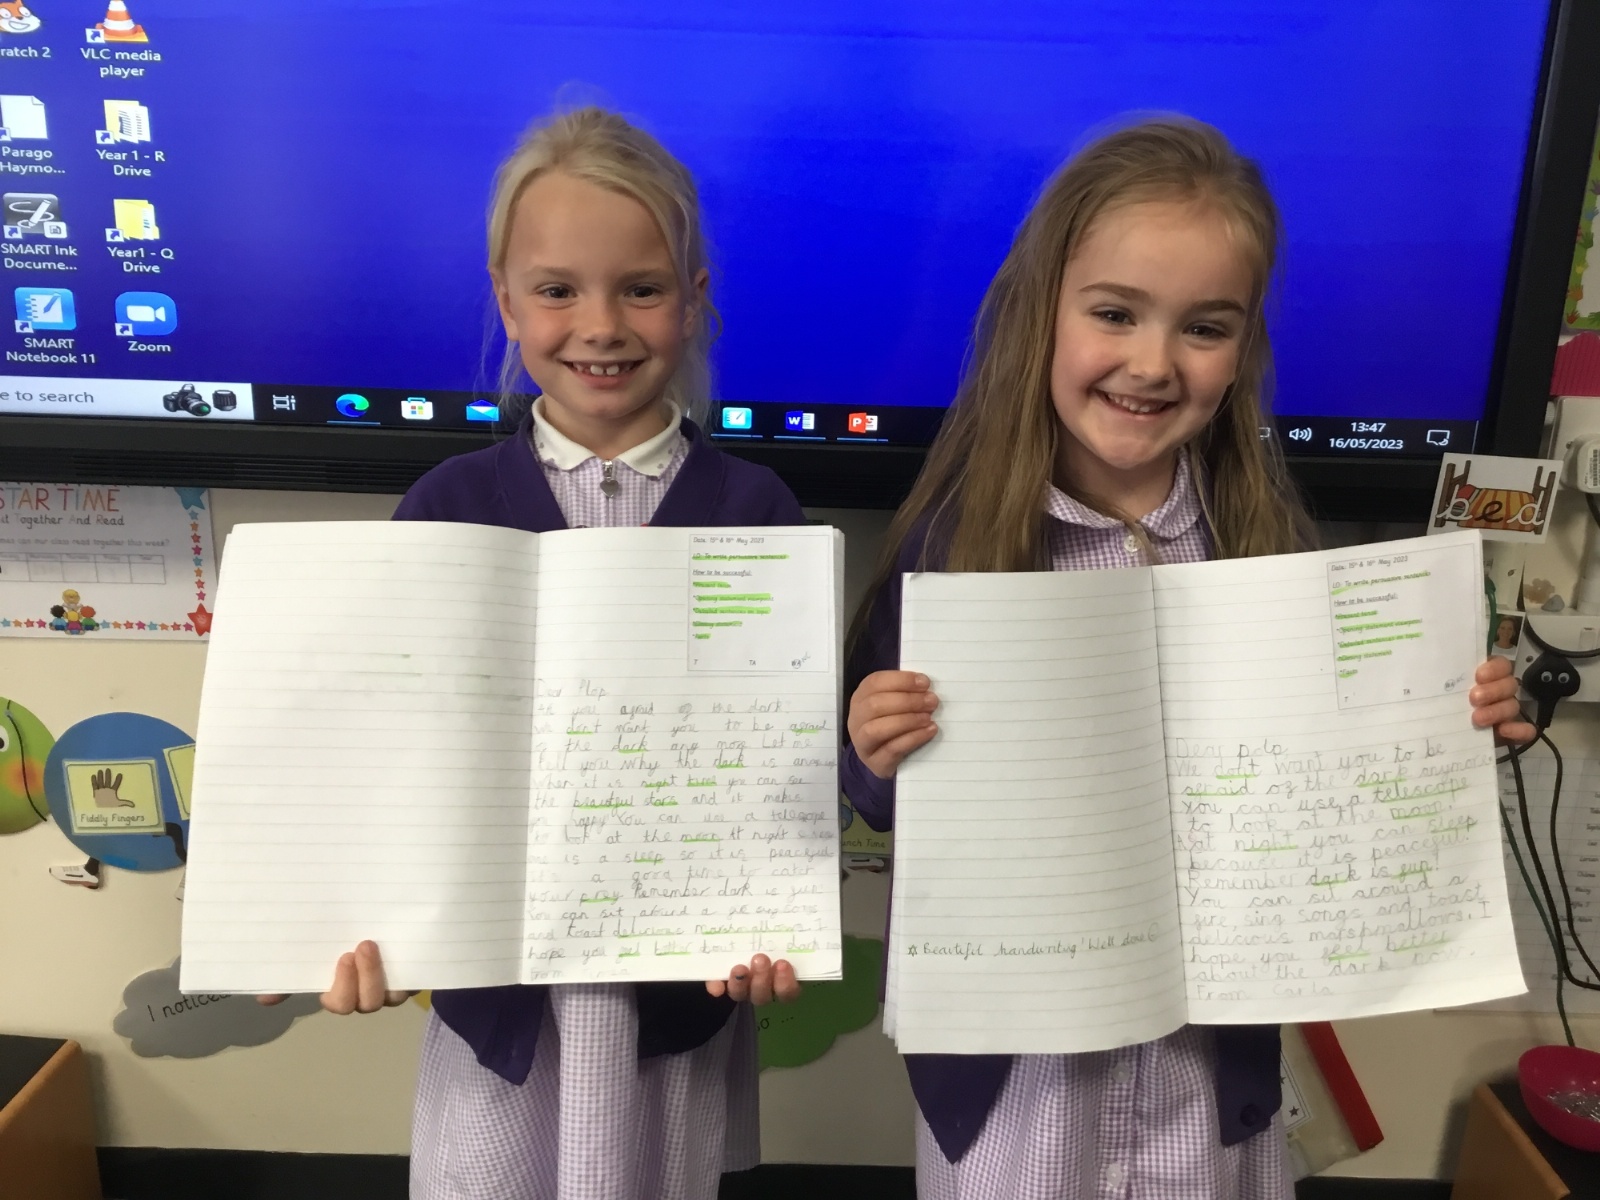 ratch 2
VLC media
player
Parago
Haymo...
Year 1 - R
Drive
SMART Ink
Docume...
Year1 - Q
Drive
SMART
Notebook 11
Zoom
e to search
13:47
16/05/2023
STAR TIME
it Together And Read
Fiddly Fingers
I notice
bed
Date: 15th & 16th May 2023
LO: To write persuasive sentences
How to be successful:
*Opening statement
*Detailed sentences on topic
TA
Dear Plop
you afraid of the dark?
We dont want you to be afraid
of the dark any more Let me
tell you why the dark is
When it is night time you can see
the beautiful stars and it makes
you happy You can use a telescope
to look at the moon At night
is a sleep so it is peaceful
It's a good time to catch
your prey Remember dark is fun
You can sit around a
and toast delicious marshmallows. I
hope you bettr bout the dark
from
Date: 15th & 16th May 2023
LO: To write persuasive sentences
How to be successful:
*Opening statement
*Detailed sentences on topic
TA
Dear plop
We dont want you to be
afraid of the dark anymore
You can use a telescope
to look at the moon.
At night you can sleep
because it is peaceful.
Remember dark is fun!
You can sit around a
fire, sing songs and toast
delicious marshmallows. I
hope you feel better
about the dark now.
From Carla
Beautiful handwriting! Well done